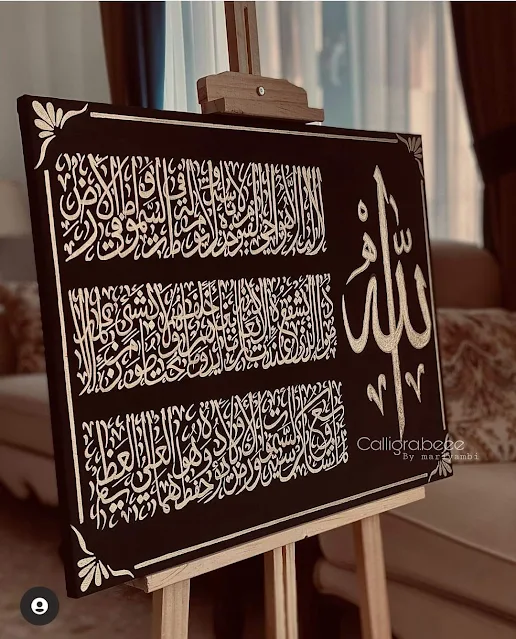 الله
الله لا اله الا هو الحي القيوم لا تأخذه سنة ولا نوم له ما في السموت وما في الارض
من ذا الذي يشفع عنده الا باذنه يعلم ما بين ايديهم وما خلفهم ولا يحيطون بشيء من علمه الا
بما شاء وسع كرسيه السموت والارض ولا يؤده حفظهما وهو العلي العظيم
Calligra.beee
By